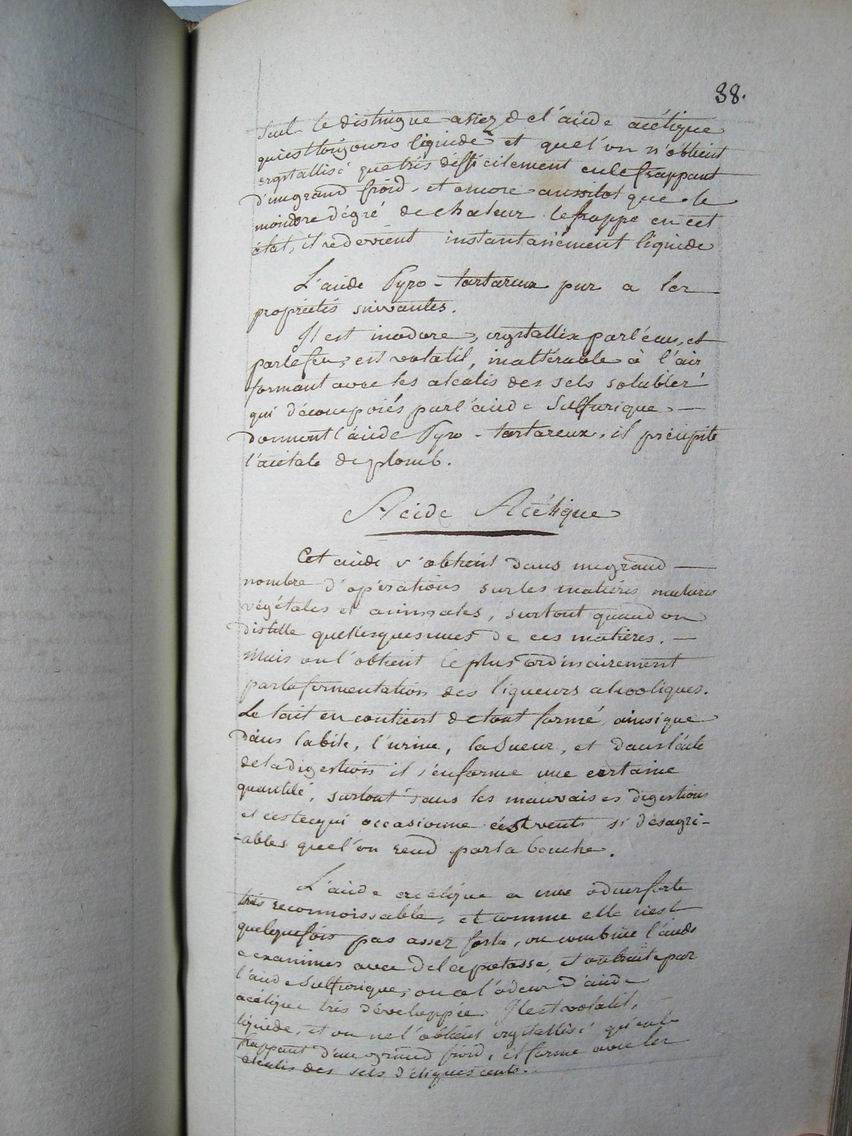 38.
seul le distingue assez de l'acide acétique
qui est toujours liquide et que l'on n'obtient
crystallisé que très difficilement en le frappant
d'un grand froid, et encore aussitot que le
moindre dégré de chaleur le frappe en cet
état, il redevient instantanément liquide
L'acide Pyro-tartareux pur a les
propriétés suivantes.
Il est inodore, crystallix par l'eau, et
par le feu, est volatil, inaltérable à l'air
formant avec les alcalis des sels solubles
qui décomposés par l'acide Sulfurique
donnent l'acide Pyro-tartareux, il précipite
l'acétate de plomb.
Acide Acétique
Cet acide s'obtient dans un grand
nombre d'opérations sur les matières
végétales et animales, surtout quand on
distille quelques unes de ces matières.
Mais on l'obtient le plus ordinairement
par la fermentation des liqueurs alcooliques.
Le lait en contient de tout formé, ainsi que
dans la bile, l'urine, la Sueur, et dans l'acte
de la digestion il s'en forme une certaine
quantité, surtout dans les mauvaises digestions
et c'est ce qui occasionne ces vents si désagré-
ables que l'on rend par la bouche.
L'acide acétique a une odeur forte
très reconnoissable, et comme elle n'est
quelquefois pas assez forte, on combine l'acide
a examiner avec de la potasse, et on traite par
l'acide Sulfurique, on a l'odeur d'acide
acétique très développée. Il est volatil,
liquide, et on ne l'obtient crystallisé qu'en le
frappant d'un grand froid, il forme avec les
alcalis des sels déliquescents.